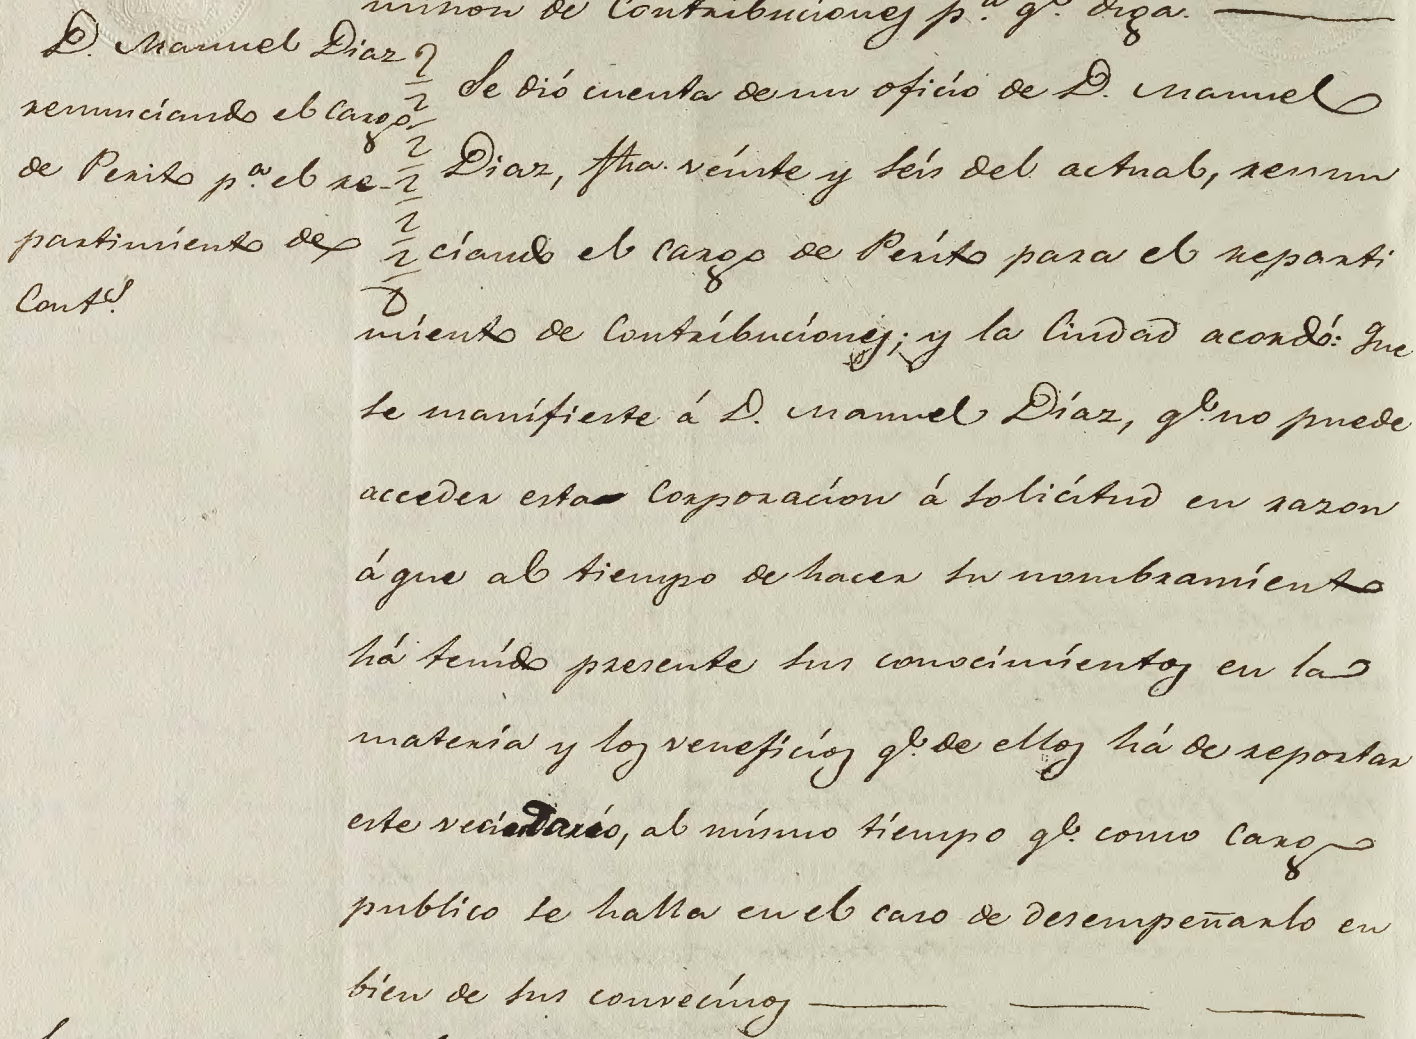 mision de Contribuciones p.ª q.e diga.
D. Manuel Diaz
renunciando el cargo
de Perito p.ª el re-
partimiento de
Cont.s
Se dió cuenta de un oficio de D. Manuel
Diaz, fha. veinte y seis del actual, renun
ciando el cargo de Perito para el reparti
miento de Contribuciones; y la Ciudad acordó: Que
se manifieste á D. Manuel Díaz, q.e no puede
acceder esta Corporacion á solicitud en razon
á que al tiempo de hacer su nombramiento
há tenido presente sus conocimientos en la
materia y los veneficios q.e de ellos há de reportar
este vecindario, al mismo tiempo q.e como cargo
publico se halla en el caso de desempeñarlo en
bien de sus convecinos